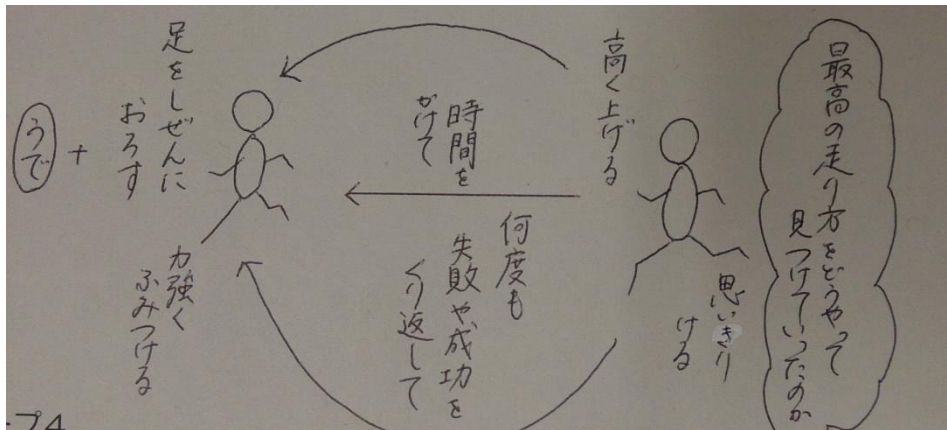 最高の走り方をどうやって
見つけていったのか
高く上げる
思いきり
ける
時間を
かけて
何度も
失敗や成功を
くり返して
足をしぜんに
おろす
力強く
ふみつける
+
うで
プ4